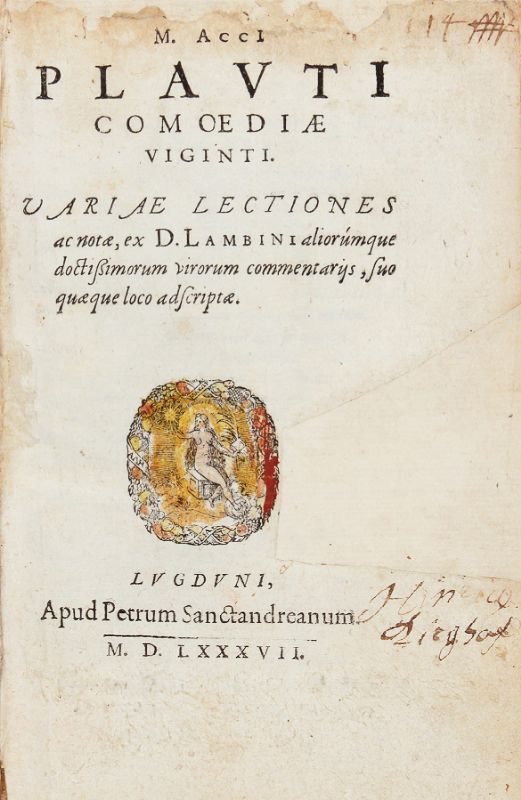 114
M. ACCI
PLAVTI
COMOEDIÆ
VIGINTI.
VARIAE LECTIONES
ac notæ, ex D. LAMBINI aliorúmque
doctißimorum virorum commentarijs, suo
quæque loco adscriptæ.
LVGDVNI,
Apud Petrum Sanctandreanum.
M. D. LXXXVII.